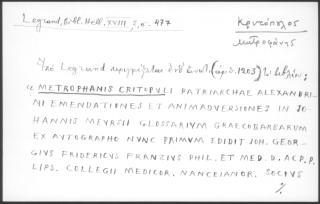 Legrand, Bibl. Hell, XVIII, 2, σ. 477
Κριτόπουλος
Μητροφάνης
Υπὸ Legrand περιγράφεται ὑπ' ἀριθ. (1203) τὸ βιβλίον:
« METROPHANIS CRITOPULI PATRIARCHAE ALEXANDRI-
NI EMENDATIONES ET ANIMADVERSIONES IN JO-
HANNIS MEVRSII GLOSSARIVM GRAECOBARBARVM
EX AVTOGRAPHO NVNC PRIMVM EDIDIT JOH. GEOR-
GIVS FRIDERICVS FRANZIVS PHIL. ET MED. D. AC P. P.
LIPS. COLLEGII MEDICOR. NANCEIANOR. SOCIVS
%